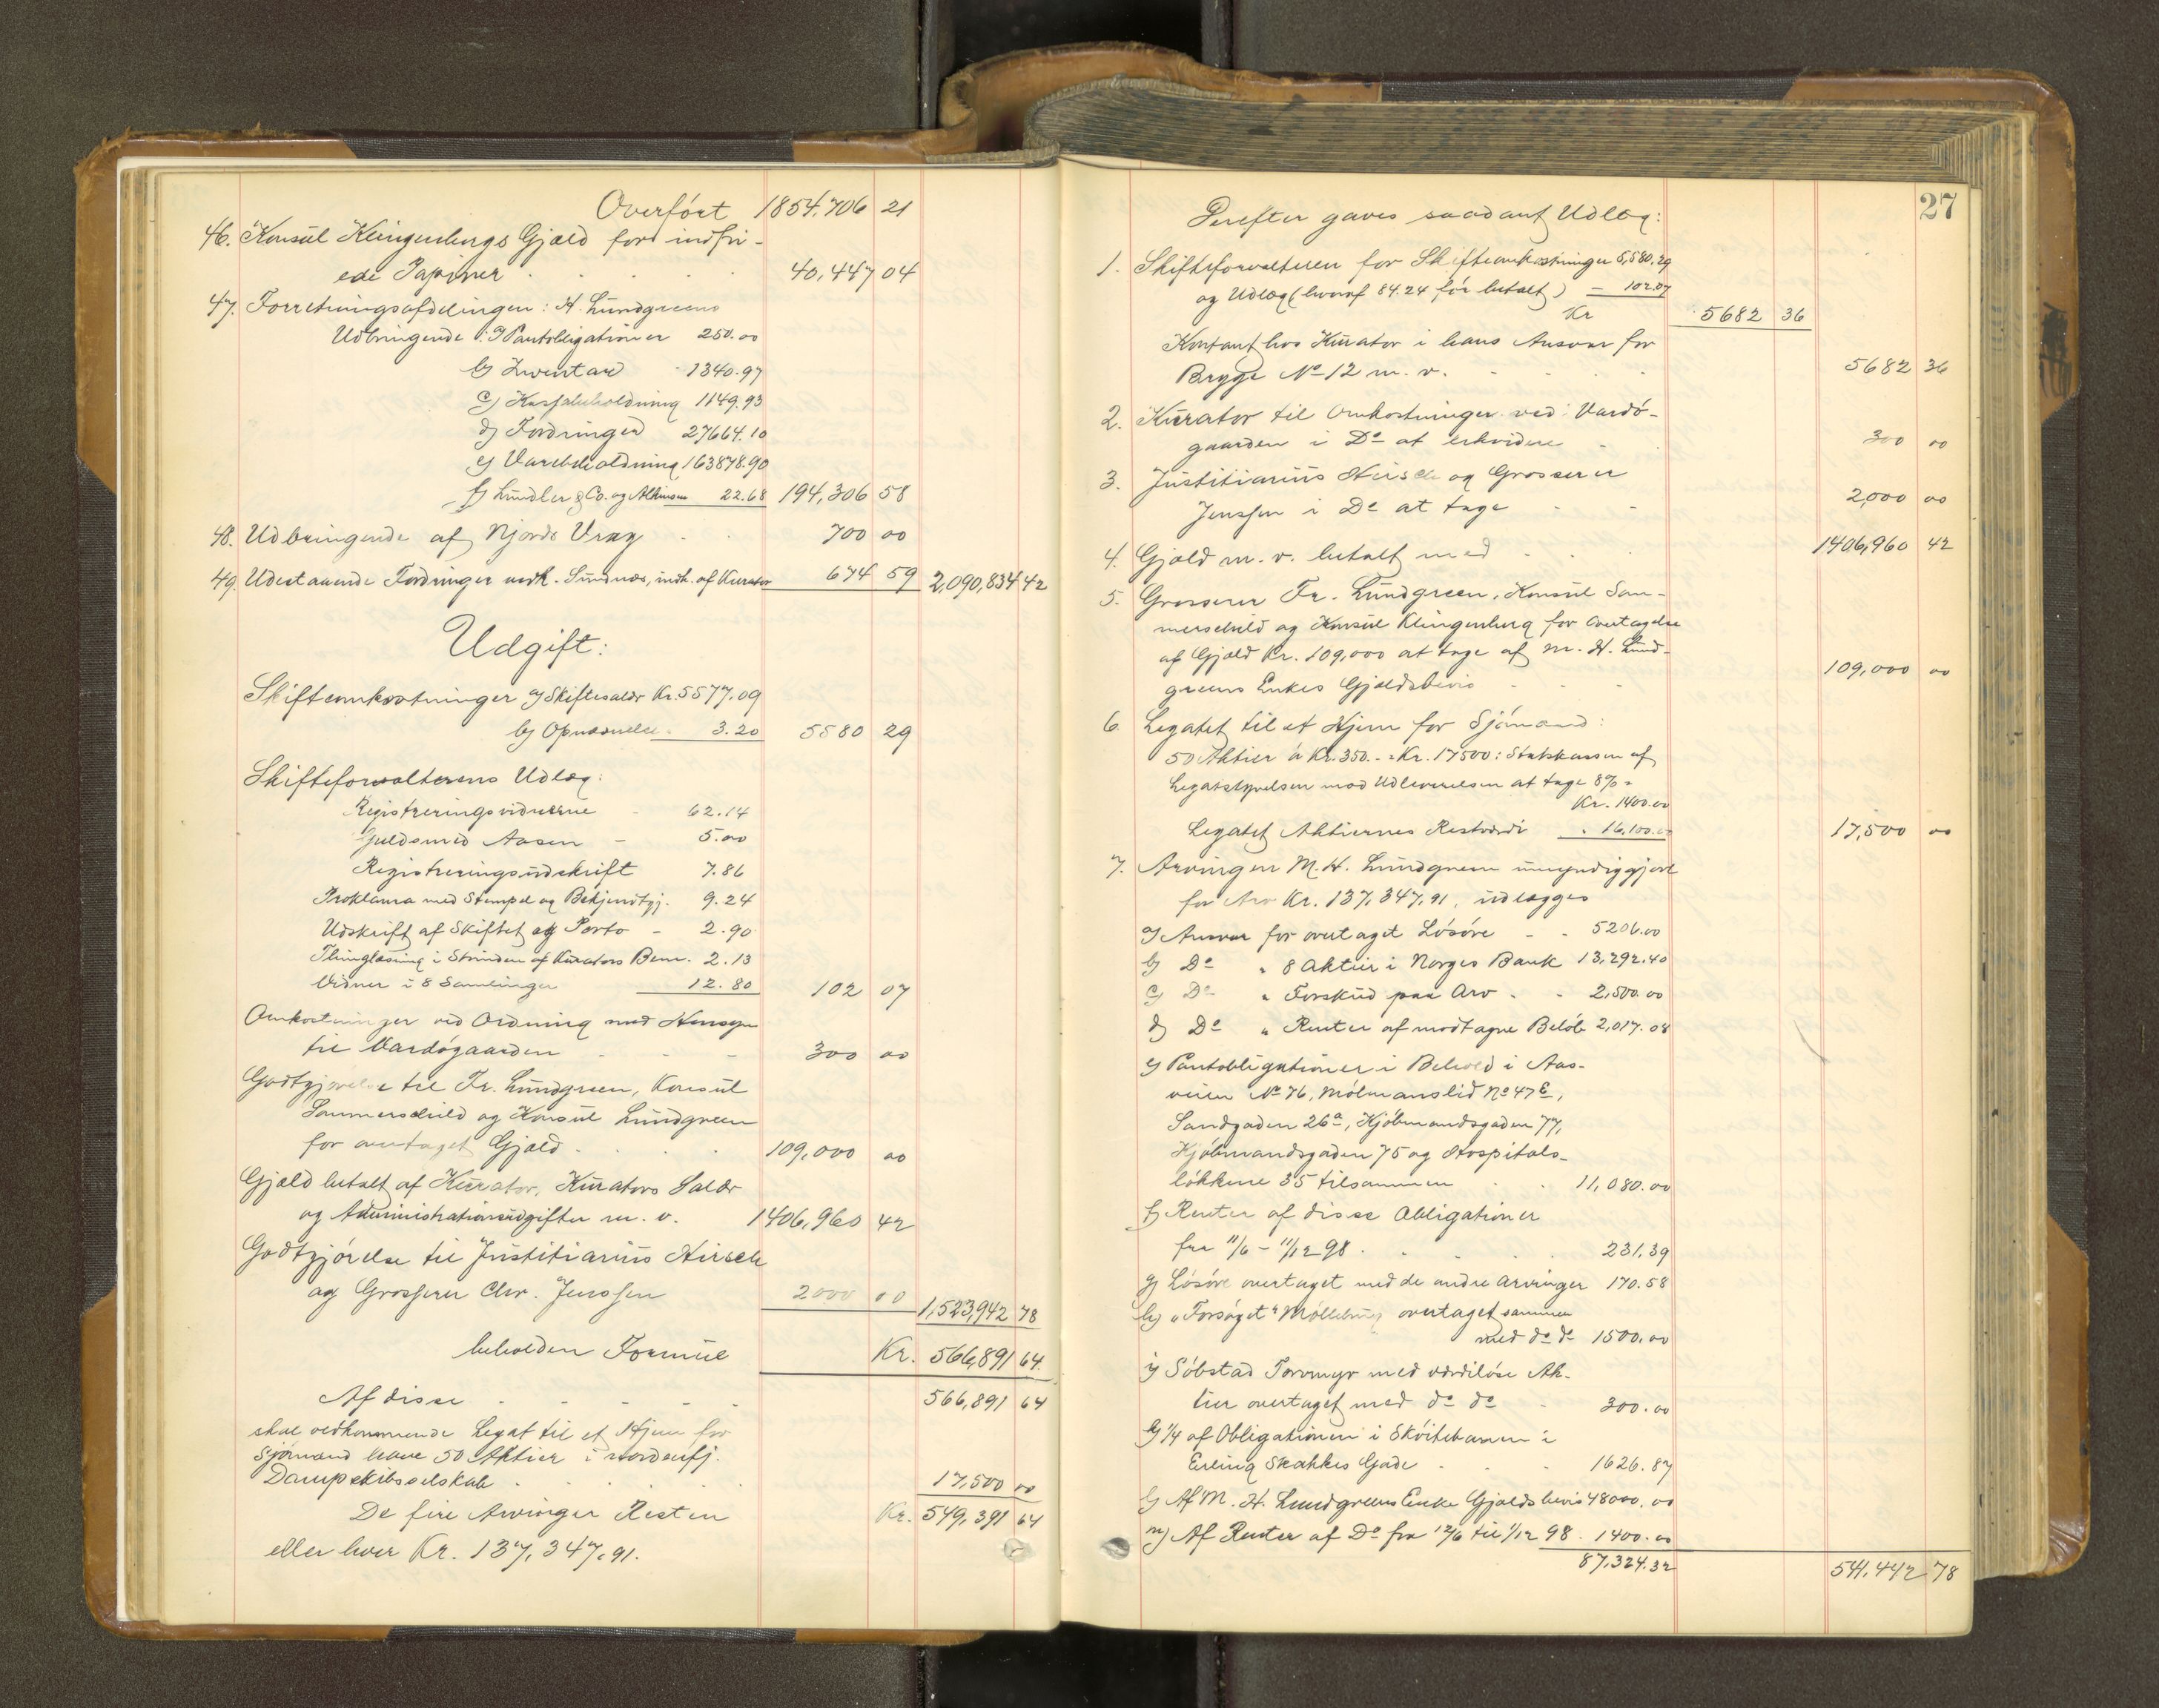 Overført 1854,706 21
46. Konsul Klingenbergs Gjæld for indfri-
ede Papirer 40,447 04
47. Forretningsafdelingen: H. Lundgreens
Udbringende: a) Pantobligationer 250.00
b) Inventar 1340.97
c) Kassebeholdning 1149.93
d) Fordringer 27664.10
e) Varebeholdning 163878.90
f) Lundler & Co. og 22.68 194,306 58
48. Udbringende af Njords Vrag 700 00
49. Udestaaende Fordringer vedk. Sundnæs, indk. af Kurator 674 59 2,090,834 42
Udgift:
Skifteomkostninger a) Skiftesalær Kr. 5577.09
b) Opnævnelse 3.20 5580 29
Skifteforvalterens Udlæg:
Registreringsvidnerne - 62.14
Guldsmed Aasen - 5.00
Registreringsudskrift 7.86
Proklama med Stempel og Bekjendtgj. 9.24
Udskrift af Skiftet og Porto - 2.90
Thinglæsning i Strinden af Kurators Bem. 2.13
Vidner i 8 Samlinger 12.80 102 07
Omkostninger ved Ordning med Hensyn
til Vardøgaarden 300 00
Godtgjørelse til Fr. Lundgreen, Konsul
Sommerschield og Konsul Lundgreen
for overtaget Gjæld 109,000 00
Gjæld betalt af Kurator, Kurators Salær
og Administrationsudgifter m. v. 1406,960 42
Godtgjørelse til Justitiarius Hirsch
og Grosserer Chr. Jenssen 2000 00 1,523,942 78
beholden Formue Kr. 566,891 64.
Af disse 566,891 64
skal vedkommende Legat til et Hjem for
Sjømænd have 50 Aktier i nordenfj.
Dampskibsselskab 17,500 00
De fire Arvinger Resten Kr. 549,391 64
eller hver Kr. 137,347.91.
27
Derefter gaves saadant Udlæg:
1. Skifteforvalteren for Skifteomkostninger 5,580.29
og Udlæg (hvoraf 84.24 før betalt) - 102.07
Kr 5682 36
Kontant hos Kurator i hans Ansvar for
Brygge No 12 m. v. 5682 36
2. Kurator til Omkostninger ved Vardø-
gaarden i Do at likvidere 300 00
3. Justitiarius Hirsch og Grosserer
Jenssen i Do at tage 2,000 00
4. Gjæld m. v. betalt med 1406,960 42
5. Grosserer Fr. Lundgreen, Konsul Som-
merschild og Konsul Klingenberg for Overtagelse
af Gjæld Kr. 109,000 at tage af M. H. Lund-
greens Enkes Gjældsbevis 109,000 00
6. Legatet til et Hjem for Sjømænd:
50 Aktier à Kr. 350.- = Kr. 17500: Statskassen af
Legatstyrelsen mod Udleverelsen at tage 8% =
Kr. 1400.00
Legatet Aktiernes Restværdi " 16,100.00 17,500 00
7. Arvingen M. H. Lundgreen umyndiggjort
for Arv Kr. 137,347.91, udlægges
a) Ansvar for overtaget Løsøre - - 5206.00
b) Do " 8 Aktier i Norges Bank 13,292.40
c) Do " Forskud paa Arv - - 2,500.00
d) Do " Renter af modtagne Beløb 2,017.08
e) Pantobligationer i Behold i Aas-
veien No 76, Mølmanslid No 47 E,
Sandgaden 26a, Kjøbmandsgaden 77,
Kjøbmandsgaden 75 og Hospitals-
løkkene 35 tilsammen 11,080.00
f) Renter af disse Obligationer
fra 11/6 - 11/12 98 231.39
g) Løsøre overtaget med de andre Arvinger 170.58
h) "Forsøget" Møllebrug overtaget sammen
med do do 1500.00
i) Søbstad Torvmyr med værdiløse Ak-
tier overtaget med do do 300.00
k) 1/4 af Obligationen i Skøitebanen i
Erling Skakkes Gade 1626.87
l) Af M. H. Lundgreens Enke Gjældsbevis 48000.00
m) Af Renter af Do fra 12/6 til 1/12 98 1400.00
87,324.32 541,442 78